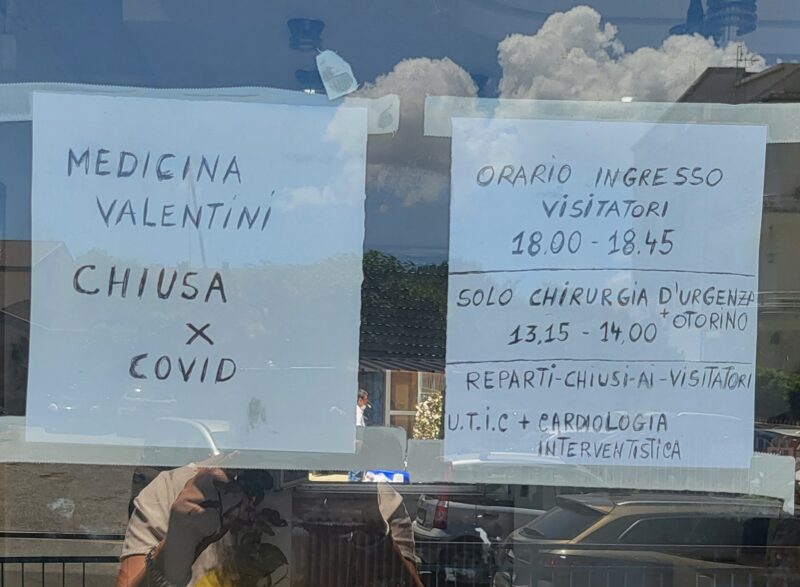 MEDICINA
VALENTINI
CHIUSA
X
COVID
ORARIO INGRESSO
VISITATORI
18.00 - 18.45
SOLO CHIRURGIA D'URGENZA
13,15 - 14,00 + OTORINO
REPARTI-CHIUSI-AI-VISITATORI
U.T.i.C + CARDIOLOGIA
INTERVENTISTICA